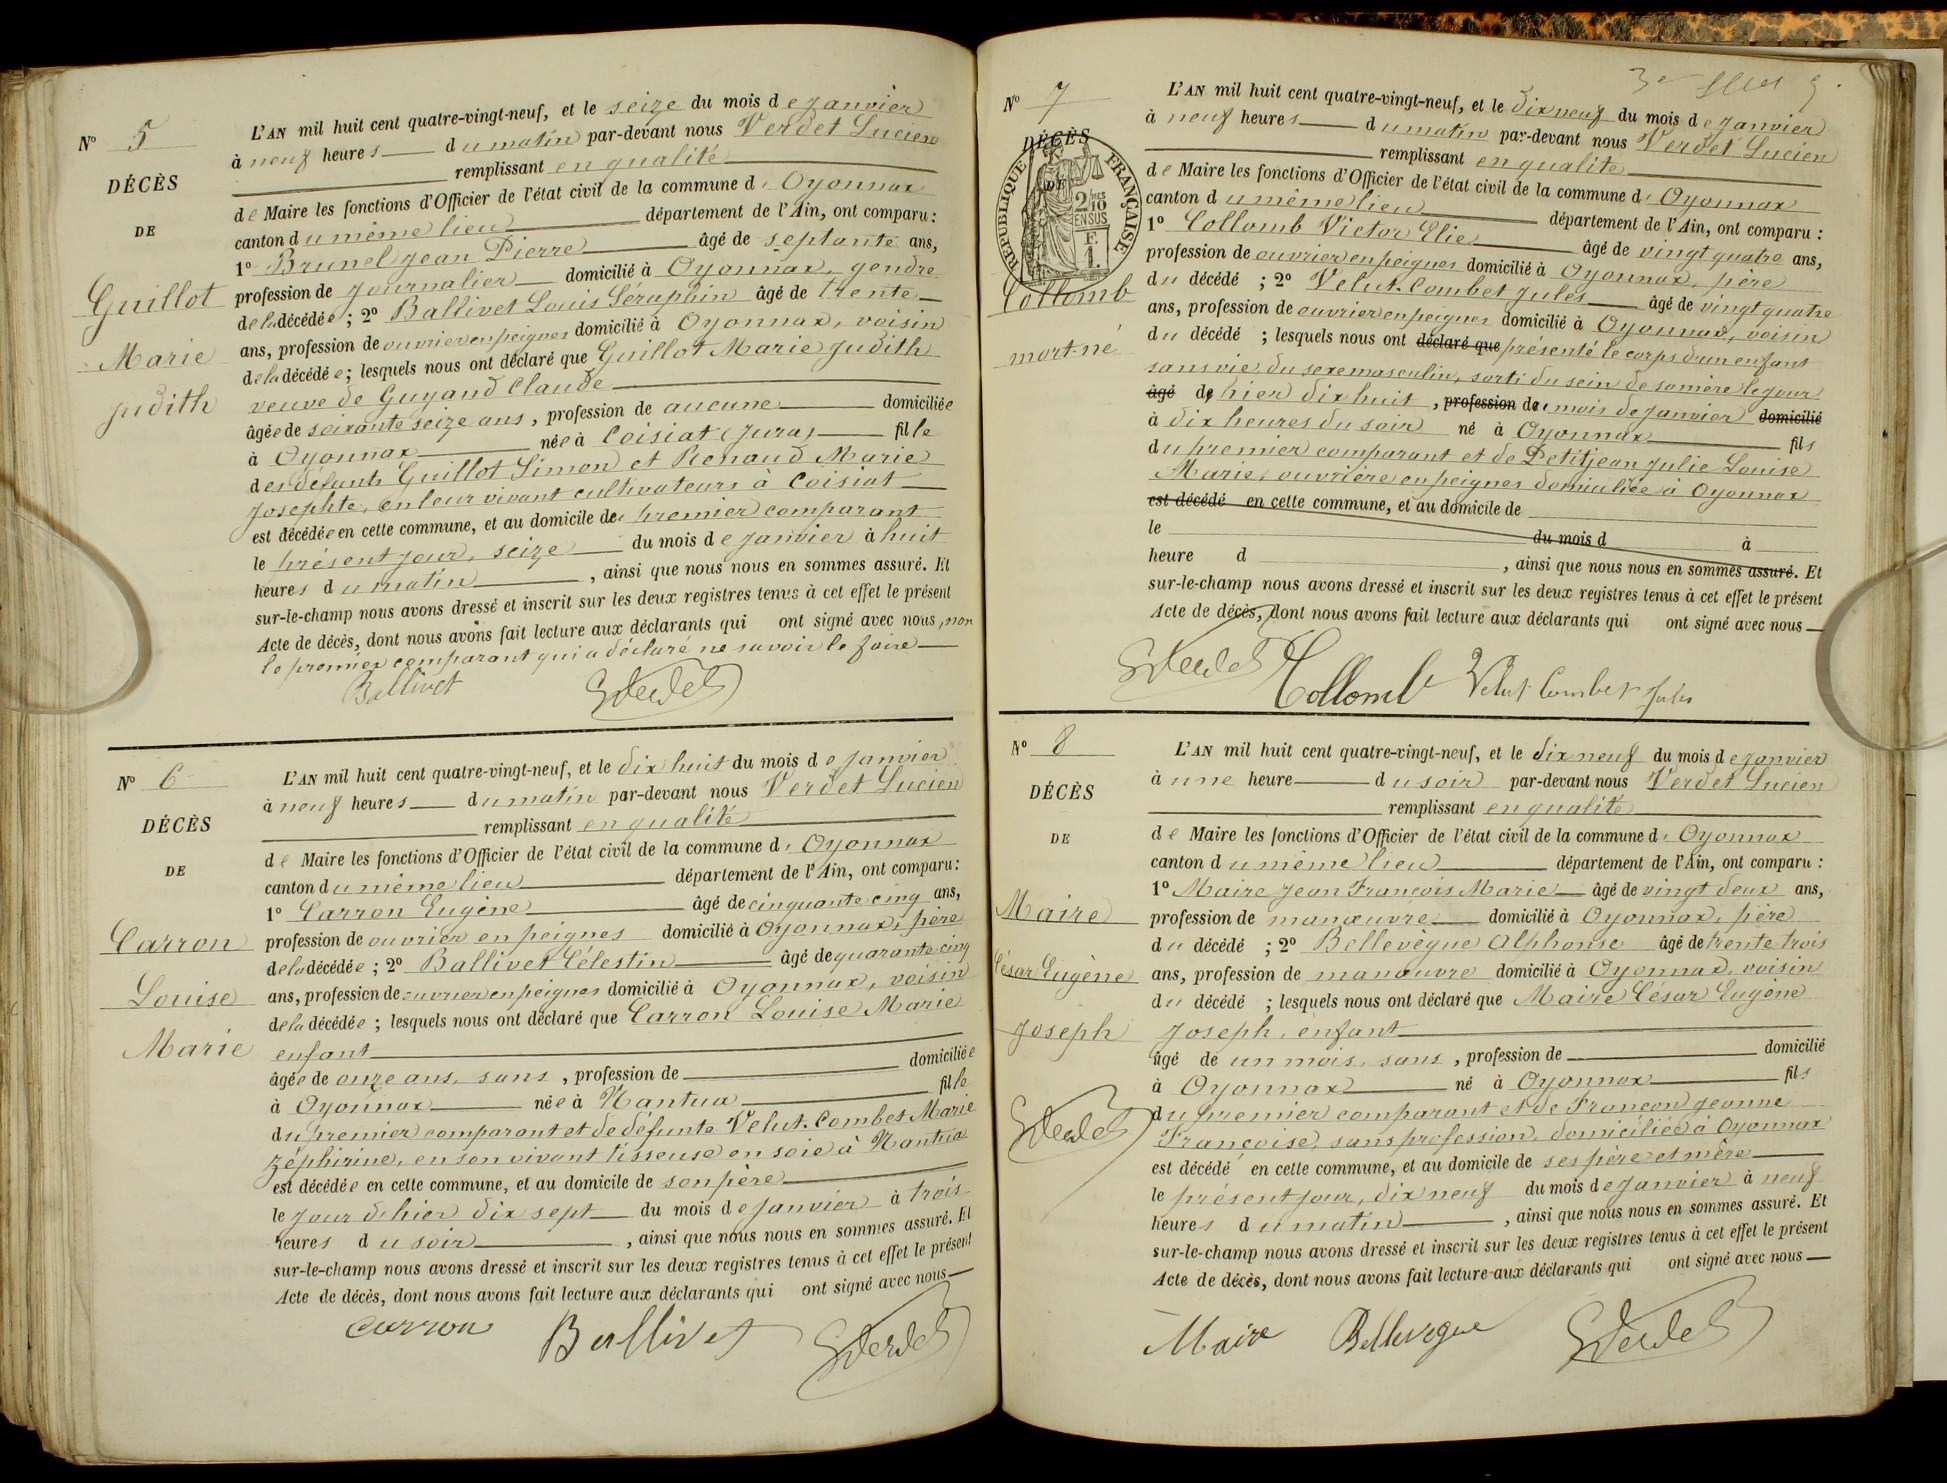 N° 5
DÉCÈS
DE
Guillot
Marie
Judith
L'AN mil huit cent quatre-vingt-neuf, et le seize du mois de Janvier
à neuf heures du matin par-devant nous Verdet Lucien
remplissant en qualité
de Maire les fonctions d'Officier de l'état civil de la commune d'Oyonnax
canton du même lieu département de l'Ain, ont comparu :
1° Brunel Jean Pierre âgé de septante ans,
profession de journalier domicilié à Oyonnax, gendre
de la décédée ; 2° Ballivet Louis Séraphin âgé de trente
ans, profession de ouvrier en peignes domicilié à Oyonnax, voisin
de la décédée ; lesquels nous ont déclaré que Guillot Marie Judith
veuve de Guyand Claude
âgée de soixante seize ans, profession de aucune domiciliée
à Oyonnax née à Coisiat (Jura) fille
des défunts Guillot Simon et Renaud Marie
Josephte, en leur vivant cultivateurs à Coisiat
est décédée en cette commune, et au domicile de premier comparant
le présent jour, seize du mois de Janvier à huit
heures du matin, ainsi que nous nous en sommes assuré. Et
sur-le-champ nous avons dressé et inscrit sur les deux registres tenus à cet effet le présent
Acte de décès, dont nous avons fait lecture aux déclarants qui ont signé avec nous, non
le premier comparant qui a déclaré ne savoir le faire
Ballivet Verdet
N° 6
DÉCÈS
DE
Carron
Louise
Marie
L'AN mil huit cent quatre-vingt-neuf, et le dix huit du mois de Janvier
à neuf heures du matin par-devant nous Verdet Lucien
remplissant en qualité
de Maire les fonctions d'Officier de l'état civil de la commune d'Oyonnax
canton du même lieu département de l'Ain, ont comparu :
1° Carron Eugène âgé de cinquante cinq ans,
profession de ouvrier en peignes domicilié à Oyonnax, père
de la décédée ; 2° Ballivet Célestin âgé de quarante cinq
ans, profession de ouvrier en peignes domicilié à Oyonnax, voisin
de la décédée ; lesquels nous ont déclaré que Carron Louise Marie
enfant
âgée de onze ans, sans, profession de domiciliée
à Oyonnax née à Nantua fille
du premier comparant et de défunte Velut-Combet Marie
Zéphirine, en son vivant tisseuse en soie à Nantua
est décédée en cette commune, et au domicile de son père
le jour d'hier dix sept du mois de Janvier à trois
heures du soir, ainsi que nous nous en sommes assuré. Et
sur-le-champ nous avons dressé et inscrit sur les deux registres tenus à cet effet le présent
Acte de décès, dont nous avons fait lecture aux déclarants qui ont signé avec nous
Carron Ballivet Verdet
N° 7
DÉCÈS
DE
RÉPUBLIQUE FRANÇAISE
2/10 EN SUS
F. 1.
Collomb
mort-né
L'AN mil huit cent quatre-vingt-neuf, et le dix neuf du mois de Janvier
à neuf heures du matin par-devant nous Verdet Lucien
remplissant en qualité
de Maire les fonctions d'Officier de l'état civil de la commune d'Oyonnax
canton du même lieu département de l'Ain, ont comparu :
1° Collomb Victor Elie âgé de vingt quatre ans,
profession de ouvrier en peignes domicilié à Oyonnax, père
du décédé ; 2° Velut-Combet Jules âgé de vingt quatre
ans, profession de ouvrier en peignes domicilié à Oyonnax, voisin
du décédé ; lesquels nous ont déclaré que présenté le corps d'un enfant
sans vie du sexe masculin, sorti du sein de sa mère le jour
âgé de hier dix huit, profession de mois de Janvier domicilié
à dix heures du soir né à Oyonnax fils
du premier comparant et de Petitjean Julie Louise
Marie, ouvrière en peignes domiciliée à Oyonnax
est décédé en cette commune, et au domicile de
le du mois d à
heure d , ainsi que nous nous en sommes assuré. Et
sur-le-champ nous avons dressé et inscrit sur les deux registres tenus à cet effet le présent
Acte de décès, dont nous avons fait lecture aux déclarants qui ont signé avec nous
Verdet Collomb Velut Combet Jules
N° 8
DÉCÈS
DE
Maire
César Eugène
Joseph
Verdet
L'AN mil huit cent quatre-vingt-neuf, et le dix neuf du mois de Janvier
à une heure du soir par-devant nous Verdet Lucien
remplissant en qualité
de Maire les fonctions d'Officier de l'état civil de la commune d'Oyonnax
canton du même lieu département de l'Ain, ont comparu :
1° Maire Jean François Marie âgé de vingt deux ans,
profession de manœuvre domicilié à Oyonnax, père
du décédé ; 2° Bellevègue Alphonse âgé de trente trois
ans, profession de manœuvre domicilié à Oyonnax, voisin
du décédé ; lesquels nous ont déclaré que Maire César Eugène
Joseph, enfant
âgé de un mois, sans, profession de domicilié
à Oyonnax né à Oyonnax fils
du premier comparant et de Françon Jeanne
Françoise, sans profession, domiciliée à Oyonnax
est décédé en cette commune, et au domicile de ses père et mère
le présent jour, dix neuf du mois de Janvier à neuf
heures du matin, ainsi que nous nous en sommes assuré. Et
sur-le-champ nous avons dressé et inscrit sur les deux registres tenus à cet effet le présent
Acte de décès, dont nous avons fait lecture aux déclarants qui ont signé avec nous
Maire Bellevegue Verdet